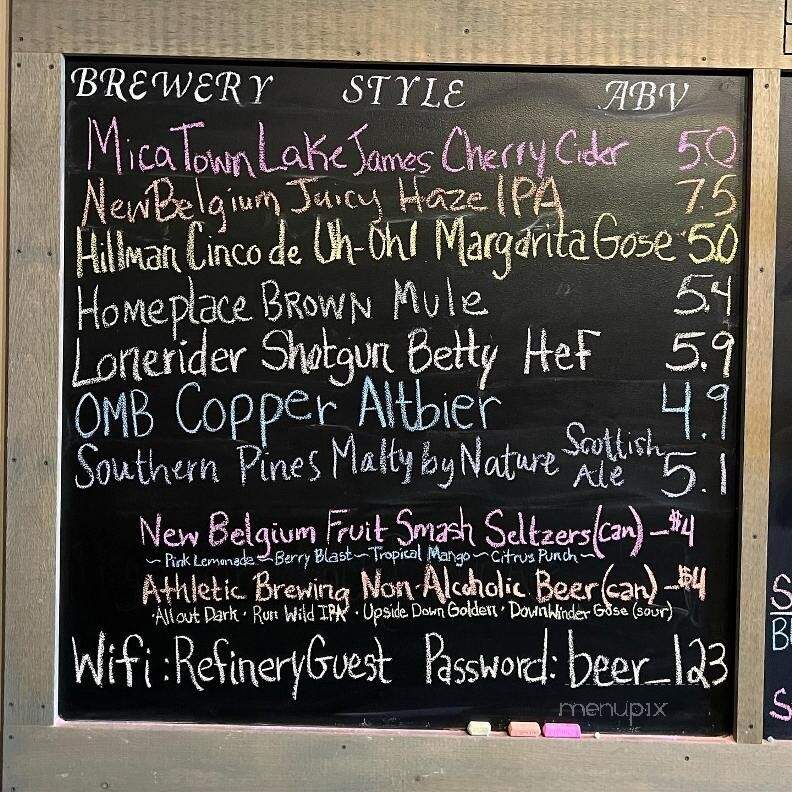 BREWERY STYLE ABV
Mica Town Lake James Cherry Cider 5.0
New Belgium Juicy Haze IPA 7.5
Hillman Cinco de Uh-Oh! Margarita Gose 5.0
Homeplace BROWN Mule 5.4
Lonerider Shotgun Betty Hef 5.9
OMB Copper Altbier 4.9
Southern Pines Malty by Nature Scottish Ale 5.1
New Belgium Fruit Smash Seltzers (can) - $4
~ Pink Lemonade ~ Berry Blast ~ Tropical Mango ~ Citrus Punch ~
Athletic Brewing Non-Alcoholic Beer (can) - $4
· All out Dark · Run Wild IPA · Upside Down Golden · Downwinder Gose (sour)
Wifi: RefineryGuest Password: beer_123
menupix
S
B
S